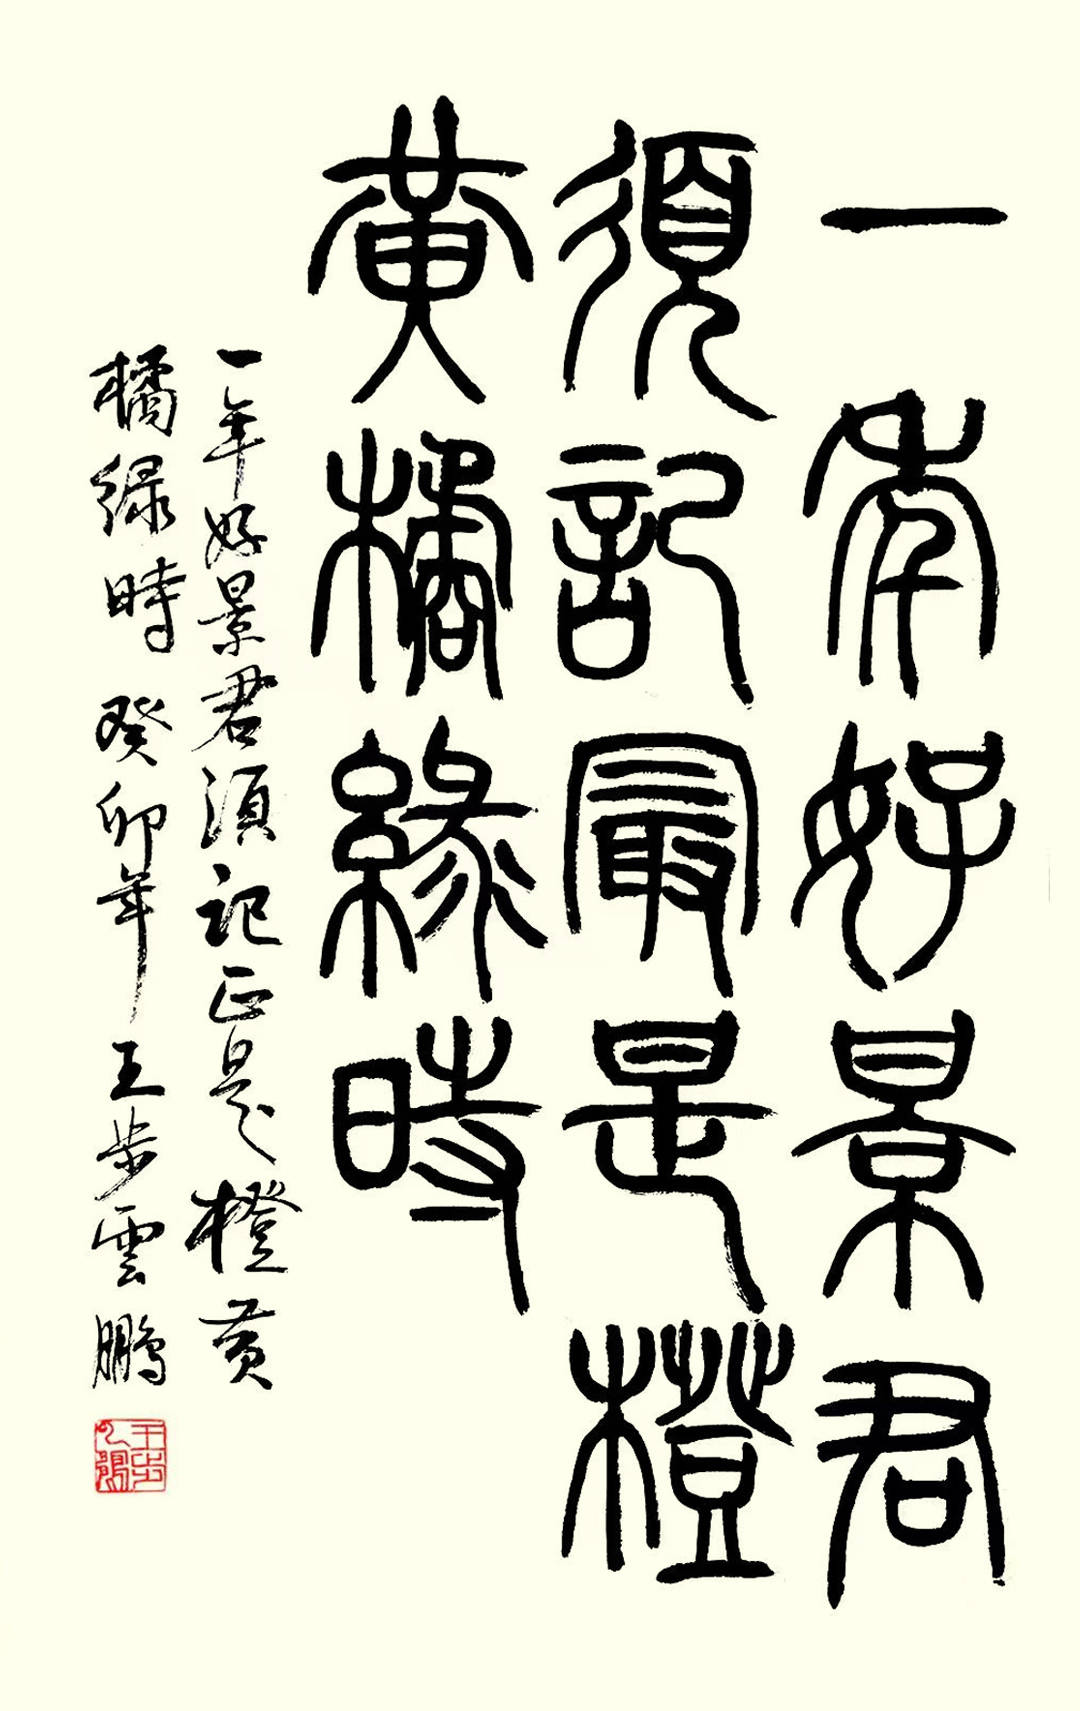 一年好景君
須記最是橙
黄橘緑時
一年好景君須記正是橙黄
橘緑時 癸卯年王步雲鵬